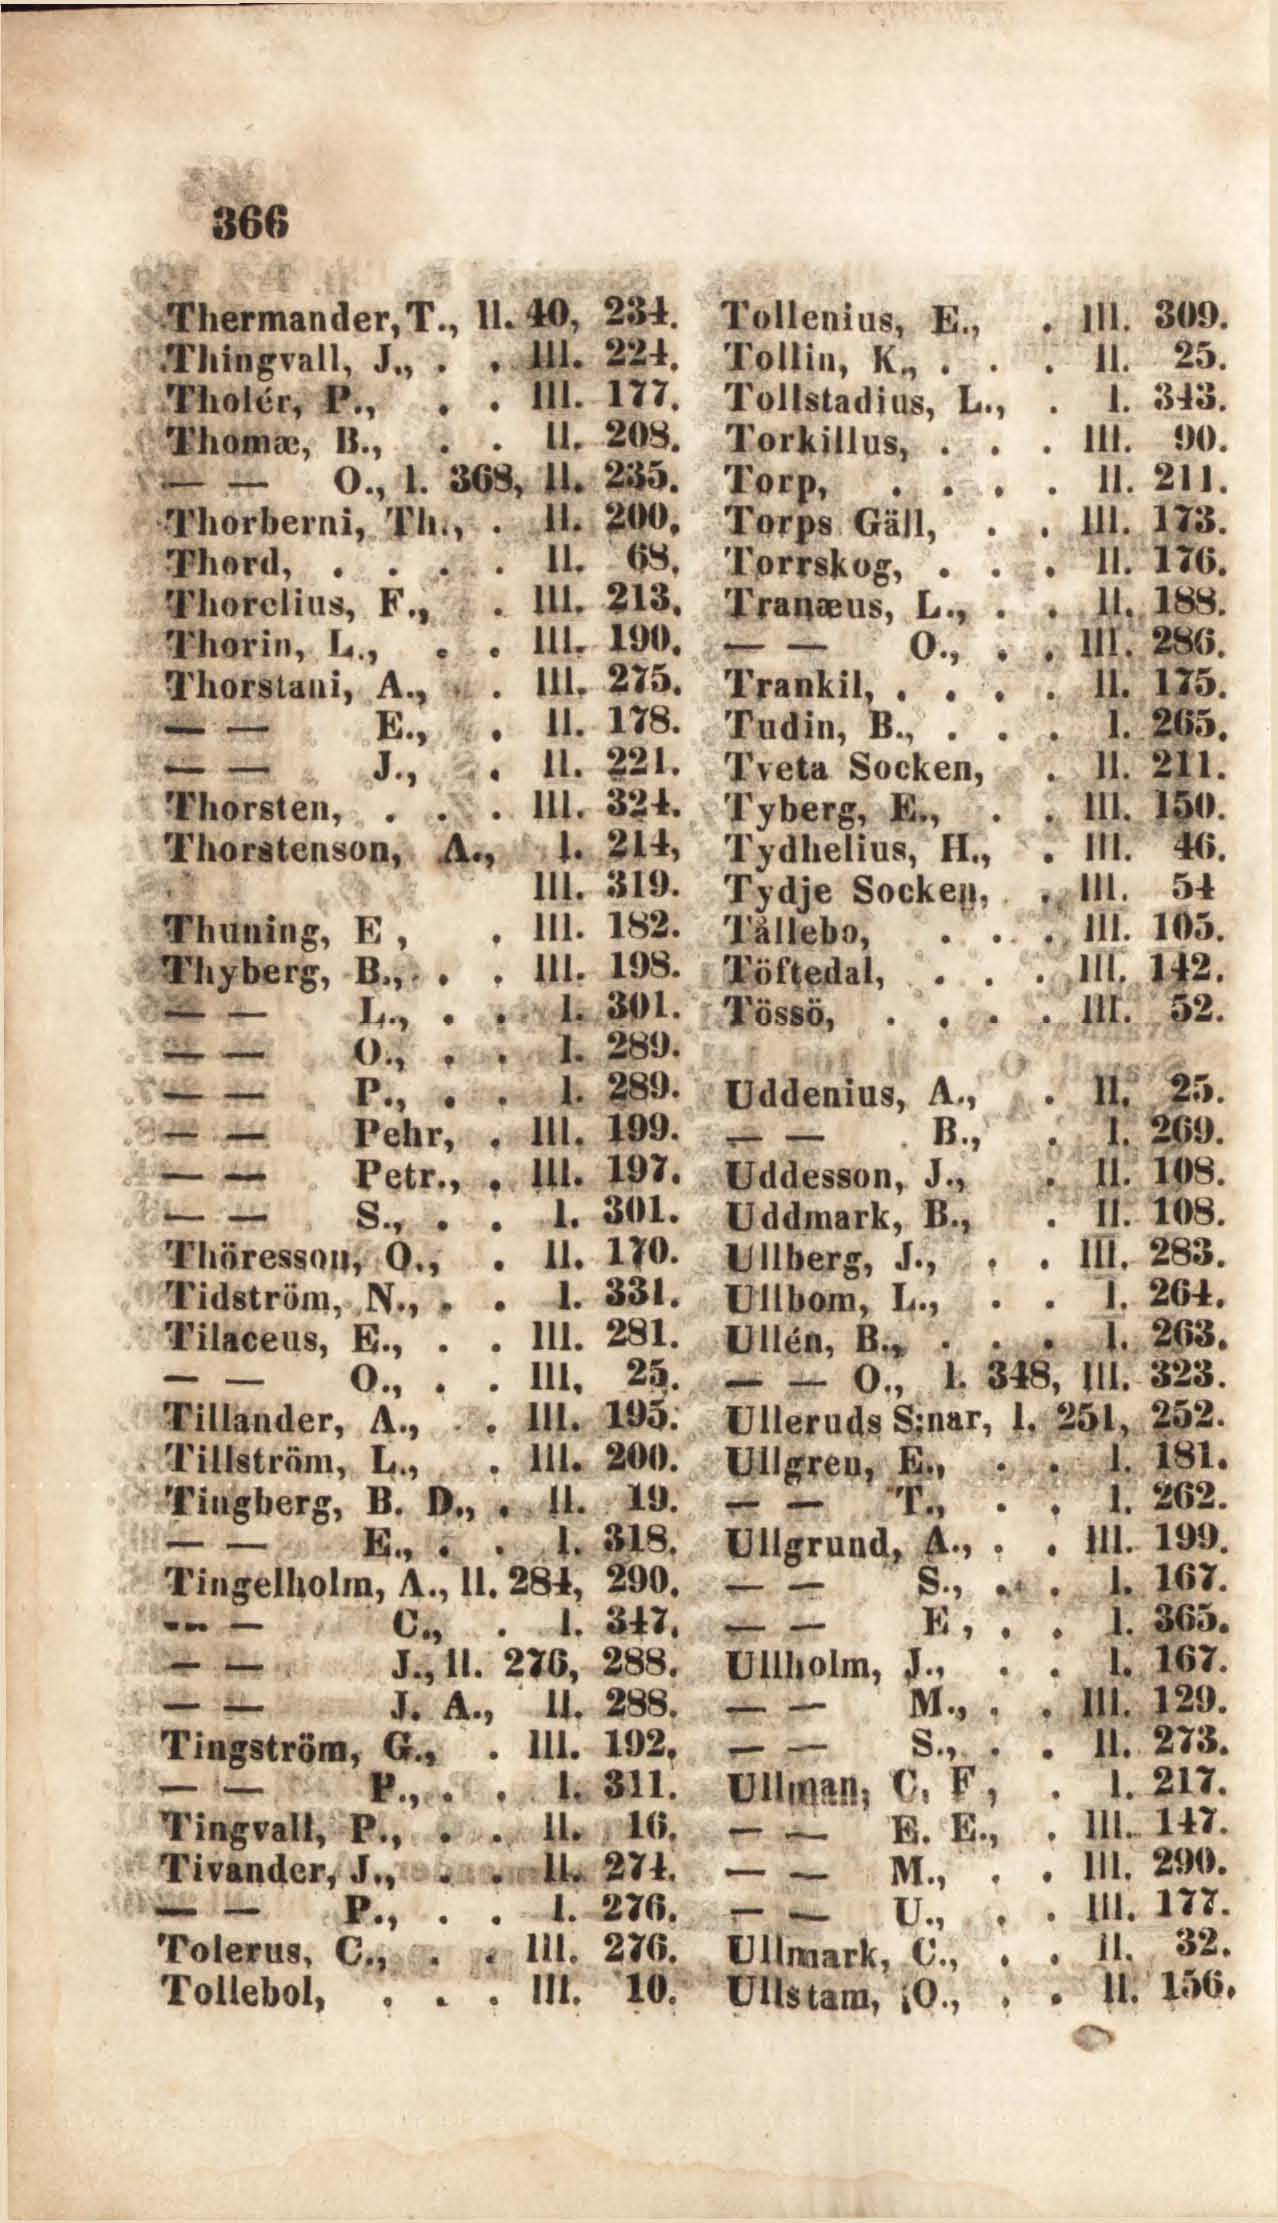 366
Thermander, T., II. 40, 234.
Thingvall, J., . . III. 224.
Tholér, P., . . III. 177.
Thomæ, B., . . II. 208.
— — O., I. 368, II. 235.
Thorberni, Th., . II. 200.
Thord, . . . . II. 68.
Thorelius, F., . III. 213.
Thorin, L., . . III. 190.
Thorstani, A., . III. 275.
— — E., . II. 178.
— — J., . II. 221.
Thorsten, . . . III. 324.
Thorstenson, A., I. 214,
III. 319.
Thuning, E , . III. 182.
Thyberg, B., . . III. 198.
— — L., . . I. 301.
— — O., . . I. 289.
— — P., . . I. 289.
— — Pehr, . III. 199.
— — Petr., . III. 197.
— — S., . . I. 301.
Thöresson, O., . II. 170.
Tidström, N., . . I. 331.
Tilaceus, E., . . III. 281.
— — O., . . III. 25.
Tillander, A., . III. 195.
Tillström, L., . III. 200.
Tingberg, B. D., . II. 19.
— — E., . . I. 318.
Tingelholm, A., II. 284, 290.
— — C., . I. 347.
— — J., II. 276, 288.
— — J. A., II. 288.
Tingström, G., . III. 192.
— — P., . . I. 311.
Tingvall, P., . . II. 16.
Tivander, J., . . II. 274.
— — P., . . I. 276.
Tolerus, C., . . III. 276.
Tollebol, . . . III. 10.
Tollenius, E., . III. 309.
Tollin, K., . . . II. 25.
Tollstadius, L., . I. 343.
Torkillus, . . . III. 90.
Torp, . . . . II. 211.
Torps Gäll, . . III. 173.
Torrskog, . . . II. 176.
Tranæus, L., . . II. 188.
— — O., . . III. 286.
Trankil, . . . . II. 175.
Tudin, B., . . . I. 265.
Tveta Socken, . II. 211.
Tyberg, E., . . III. 150.
Tydhelius, H., . III. 46.
Tydje Socken, . III. 54
Tållebo, . . . III. 105.
Töftedal, . . . III. 142.
Tössö, . . . . III. 52.
Uddenius, A., . II. 25.
— — B., . I. 269.
Uddesson, J., . II. 108.
Uddmark, B., . II. 108.
Ullberg, J., . . III. 283.
Ullbom, L., . . I. 264.
Ullén, B., . . . I. 263.
— — O., I. 348, III. 323.
Ulleruds S:nar, I. 251, 252.
Ullgren, E., . . I. 181.
— — T., . . I. 262.
Ullgrund, A., . . III. 199.
— — S., . . I. 167.
— — E , . . I. 365.
Ullholm, J., . . I. 167.
— — M., . . III. 129.
— — S., . . II. 273.
Ullman, C. F , . I. 217.
— — E. E., . III. 147.
— — M., . . III. 290.
— — U., . . III. 177.
Ullmark, C., . . II. 32.
Ullstam, O., . . II. 156.